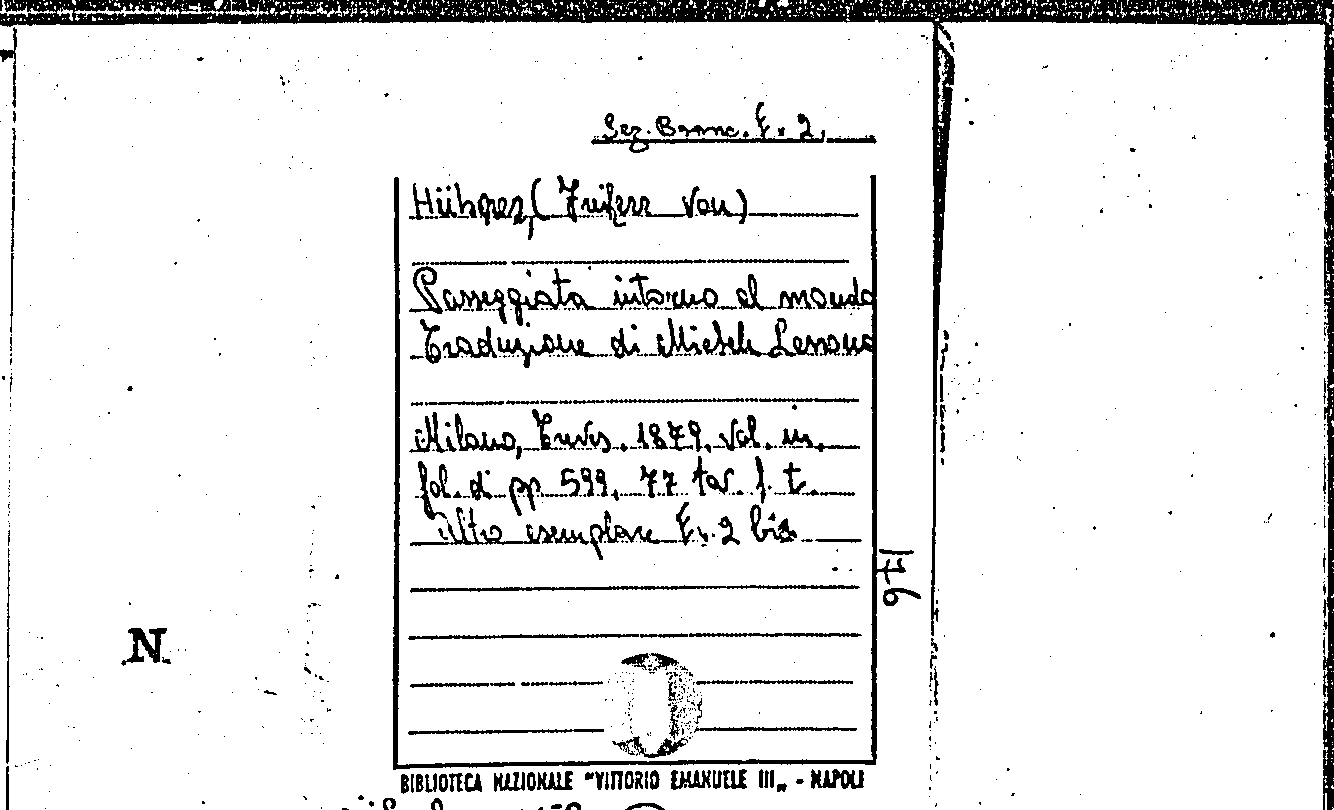 Sez. Branc. E. 2.
Hübner, (Freiherr von)
Passeggiata intorno al mondo
Traduzione di Michele Lessona
Milano, Treves. 1879. vol. in.
fol. di pp 599, 77 tav. f. t.
Altro esemplare E. 2 bis
971
N
BIBLIOTECA NAZIONALE "VITTORIO EMANUELE III„ - NAPOLI